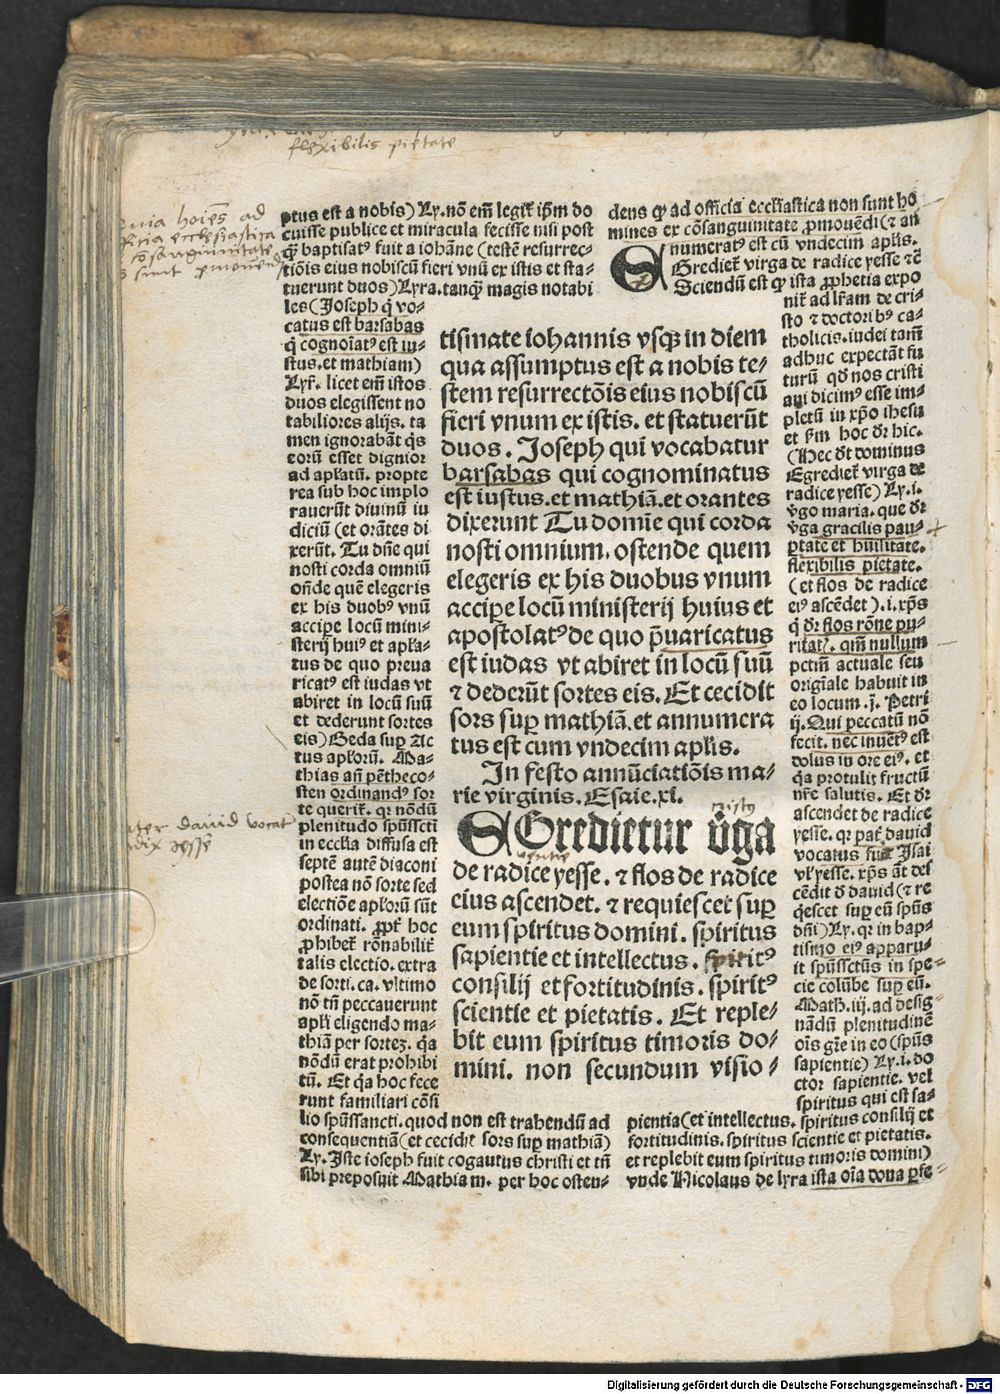 flexibilis pietate
hoiēs ad
ecclesiastica
cōsanguinitate
sunt pmouendi
ptus est a nobis) Ly. nō em̄ legit̄ ip̄m do
cuisse publice et miracula fecisse nisi post
q̄ baptisatꝰ fuit a iohāne (testē resurrec-
tiōis eius nobiscū fieri vnū ex istis et sta-
tuerunt duos) Lyra. tanq̄ magis notabi
les (Joseph q̄ vo-
catus est barsabas
q̄ cognoīatꝰ est iu-
stus. et mathiam)
Lyr̄. licet em̄ istos
duos elegissent no
tabiliores alijs. ta
men ignorabāt q̄s
eorū esset dignior
ad apl̄atū. propte
rea sub hoc implo
rauerūt diuinū iu
diciū (et orātes di
xerūt. Tu dn̄e qui
nosti corda omniū
on̄de quē elegeris
ex his duobꝰ vnū
accipe locū mini-
sterij huiꝰ et apl̄a-
tus de quo preua
ricatꝰ est iudas vt
abiret in locū suū
et dederunt sortes
eis) Beda sup̄ Ac
tus apl̄orū. Ma-
thias an̄ pētheco-
sten ordinandꝰ sor
te querit̄. qr nōdū
plenitudo spūssct̄i
in eccl̄ia diffusa est
septē autē diaconi
postea nō sorte sed
electiōe apl̄orū sūt
ordinati. ꝓpt̄ hoc
ꝓhibet̄ rōnabilit̄
talis electio. extra
de sorti. ca. vltimo
nō tn̄ peccauerunt
apl̄i eligendo ma-
thiā per sortez. q̄a
nōdū erat prohibi
tū. Et q̄a hoc fece
runt familiari cōsi
lio spūssancti. quod non est trahendū ad
consequentiā (et cecidit sors sup̄ mathiā)
Ly. Iste ioseph fuit cogautus christi et tn̄
sibi preposuit Mathiam. per hoc osten-
dauid vocat
dix yesse
tismate iohannis vsq̄ in diem
qua assumptus est a nobis te-
stem resurrectōis eius nobiscū
fieri vnum ex istis. et statuerūt
duos. Joseph qui vocabatur
barsabas qui cognominatus
est iustus. et mathiā. et orantes
dixerunt Tu domīe qui corda
nosti omnium. ostende quem
elegeris ex his duobus vnum
accipe locū ministerij huius et
apostolatꝰ de quo p̄uaricatus
est iudas vt abiret in locū suū
⁊ dederūt sortes eis. Et cecidit
sors sup̄ mathiā. et annumera
tus est cum vndecim apl̄is.
In festo annūciatiōis ma-
rie virginis. Esaie. xi.
EGredietur v̄ga
de radice yesse. ⁊ flos de radice
eius ascendet. ⁊ requiescet sup̄
eum spiritus domini. spiritus
sapientie et intellectus. spiritꝰ
consilij et fortitudinis. spiritꝰ
scientie et pietatis. Et reple-
bit eum spiritus timoris do-
mini. non secundum visio-
dens q̄ ad officia eccl̄iastica non sunt ho
mines ex cōsanguinitate ꝓmouēdi (⁊ an
numeratꝰ est cū vndecim apl̄is.
EGrediet̄ virga de radice yesse ⁊c̄
Sciendū est q̄ ista ꝓphetia expo
nit̄ ad lr̄am de cri-
sto ⁊ doctoribꝰ ca-
tholicis. iudei tam̄
adhuc expectāt fu
turū qd̄ nos cristi
ani dicimꝰ esse im-
pletū in xp̄o ihesu
et s̄m hoc dr̄ hic.
(Hec dt̄ dominus
Egrediet̄ virga de
radice yesse) Ly. i.
v̄go maria. que dr̄
v̄ga gracilis pau-
ptate et hūilitate.
flexibilis pietate.
(et flos de radice
eiꝰ ascēdet). i. xp̄s
q̄ dr̄ flos rōne pu-
ritatꝭ. qm̄ nullum
pctm̄ actuale seu
origīale habuit in
eo locum. j. Petri
ij. Qui peccatū nō
fecit. nec inuētꝰ est
dolus in ore eiꝰ. et
q̄a protulit fructū
nr̄e salutis. Et dr̄
ascendet de radice
yesse. qr pat̄ dauid
vocatus fuit Isai
vl̄ yesse. xp̄s at̄ des
cēdit d̄ dauid (⁊ re
q̄escet sup̄ eū spūs
dn̄i) Ly. qr in bap-
tismo eiꝰ apparu-
it spūssctūs in spe-
cie colūbe sup̄ eū.
Math. iij. ad desig-
nādū plenitudinē
oīs gr̄e in eo (spūs
sapientie) Ly. i. do
ctor sapientie. vel
spiritus qui est sa-
pientia (et intellectus. spiritus consilij et
fortitudinis. spiritus scientie et pietatis.
et replebit eum spiritus timoris domini)
vnde Nicolaus de lyra ista oīa dona p̄fe-
Digitalisierung gefördert durch die Deutsche Forschungsgemeinschaft - DFG